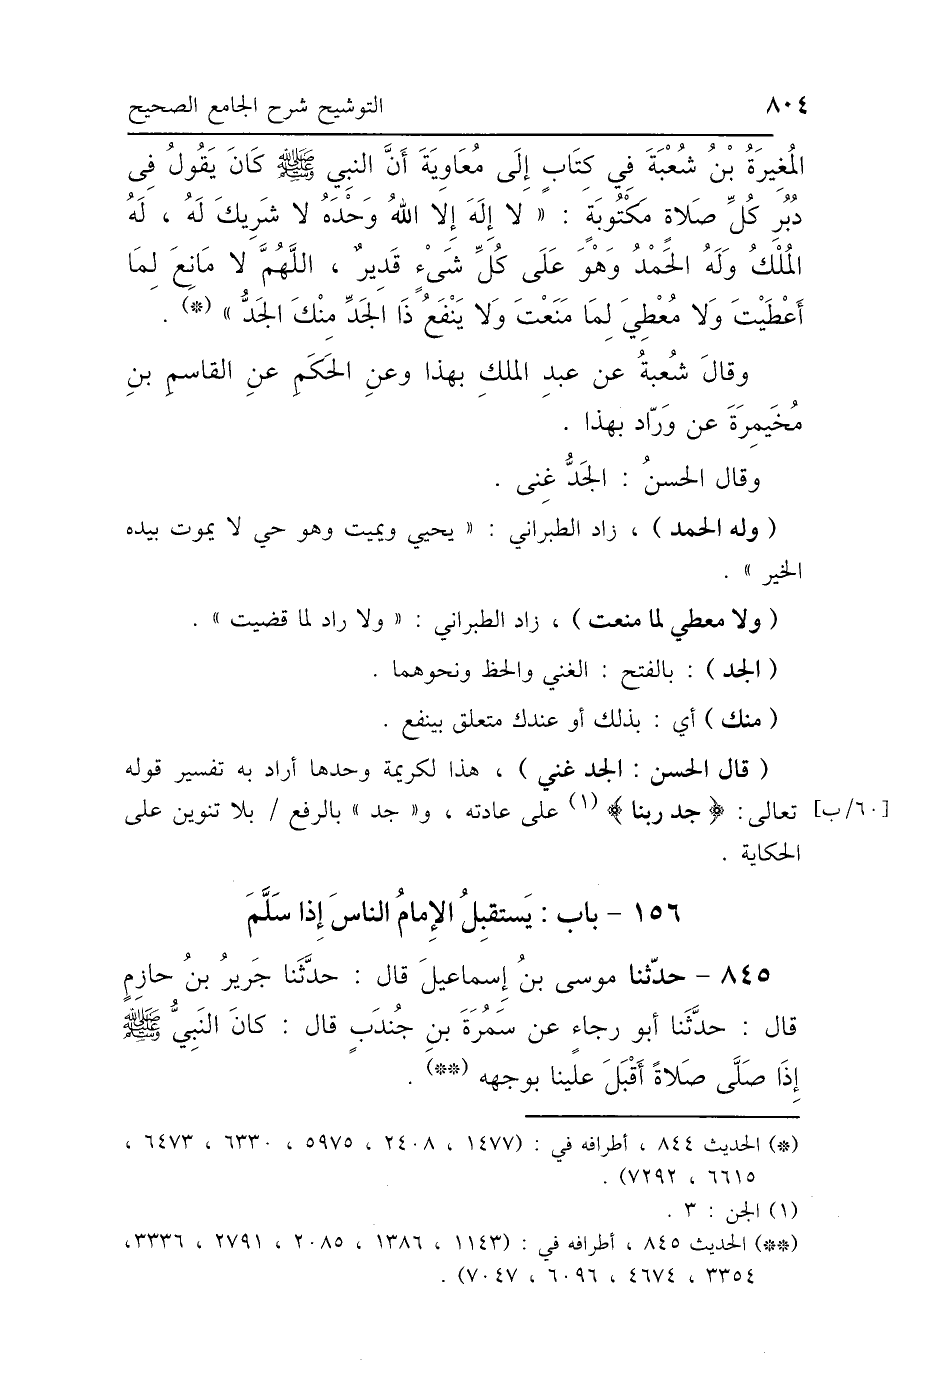 ٨٠٤ التوشيح شرح الجامع الصحيح
المُغيرَةُ بْنُ شُعْبَةَ فِي كِتَابٍ إِلَى مُعَاوِيَةَ أَنَّ النبي ﷺ كَانَ يَقُولُ فِى
دُبُرِ كُلِّ صَلاة مَكْتُوبَةٍ : « لا إِلَهَ إِلا اللهُ وَحْدَهُ لا شَرِيكَ لَهُ ، لَهُ
المُلْكُ وَلَهُ الحَمْدُ وَهْوَ عَلَى كُلِّ شَىْءٍ قَديرٌ ، اللَّهُمَّ لا مَانِعَ لمَا
أَعْطَيْتَ وَلا مُعْطِيَ لمَا مَنَعْتَ وَلا يَنْفَعُ ذَا الجَدِّ مِنْكَ الجَدُّ » (*) .
وقالَ شُعبةُ عن عبدِ الملكِ بهذا وعنِ الحَكَمِ عنِ القاسمِ بنِ
مُخَيمِرَةَ عن وَرّاد بهذا .
وقال الحسنُ : الجَدُّ غِنى .
( وله الحمد ) ، زاد الطبراني : « يحيي ويميت وهو حي لا يموت بيده
الخير » .
( ولا معطي لما منعت ) ، زاد الطبراني : « ولا راد لما قضيت » .
( الجد ) : بالفتح : الغني والحظ ونحوهما .
( منك ) أي : بذلك أو عندك متعلق بينفع .
( قال الحسن : الجد غني ) ، هذا لكريمة وحدها أراد به تفسير قوله
[٦٠/ب] تعالى: ﴿ جد ربنا ﴾ (١) على عادته ، و« جد » بالرفع / بلا تنوين على
الحكاية .
١٥٦ - باب : يَستقبِلُ الإِمامُ الناسَ إِذا سَلَّمَ
٨٤٥ - حدّثنا موسى بنُ إِسماعيلَ قال : حدَّثَنا جَريرُ بنُ حازمٍ
قال : حدَّثَنا أبو رجاءٍ عن سَمُرَةَ بنِ جُندَبٍ قال : كانَ النبيُّ ﷺ
إِذَا صَلَّى صَلاةً أَقْبَلَ علينا بوجهِه (**) .
(*) الحديث ٨٤٤ ، أطرافه في : (١٤٧٧ ، ٢٤٠٨ ، ٥٩٧٥ ، ٦٣٣٠ ، ٦٤٧٣ ،
٦٦١٥ ، ٧٢٩٢) .
(١) الجن : ٣ .
(**) الحديث ٨٤٥ ، أطرافه في : (١١٤٣ ، ١٣٨٦ ، ٢٠٨٥ ، ٢٧٩١ ، ٣٣٣٦،
٣٣٥٤ ، ٤٦٧٤ ، ٦٠٩٦ ، ٧٠٤٧) .